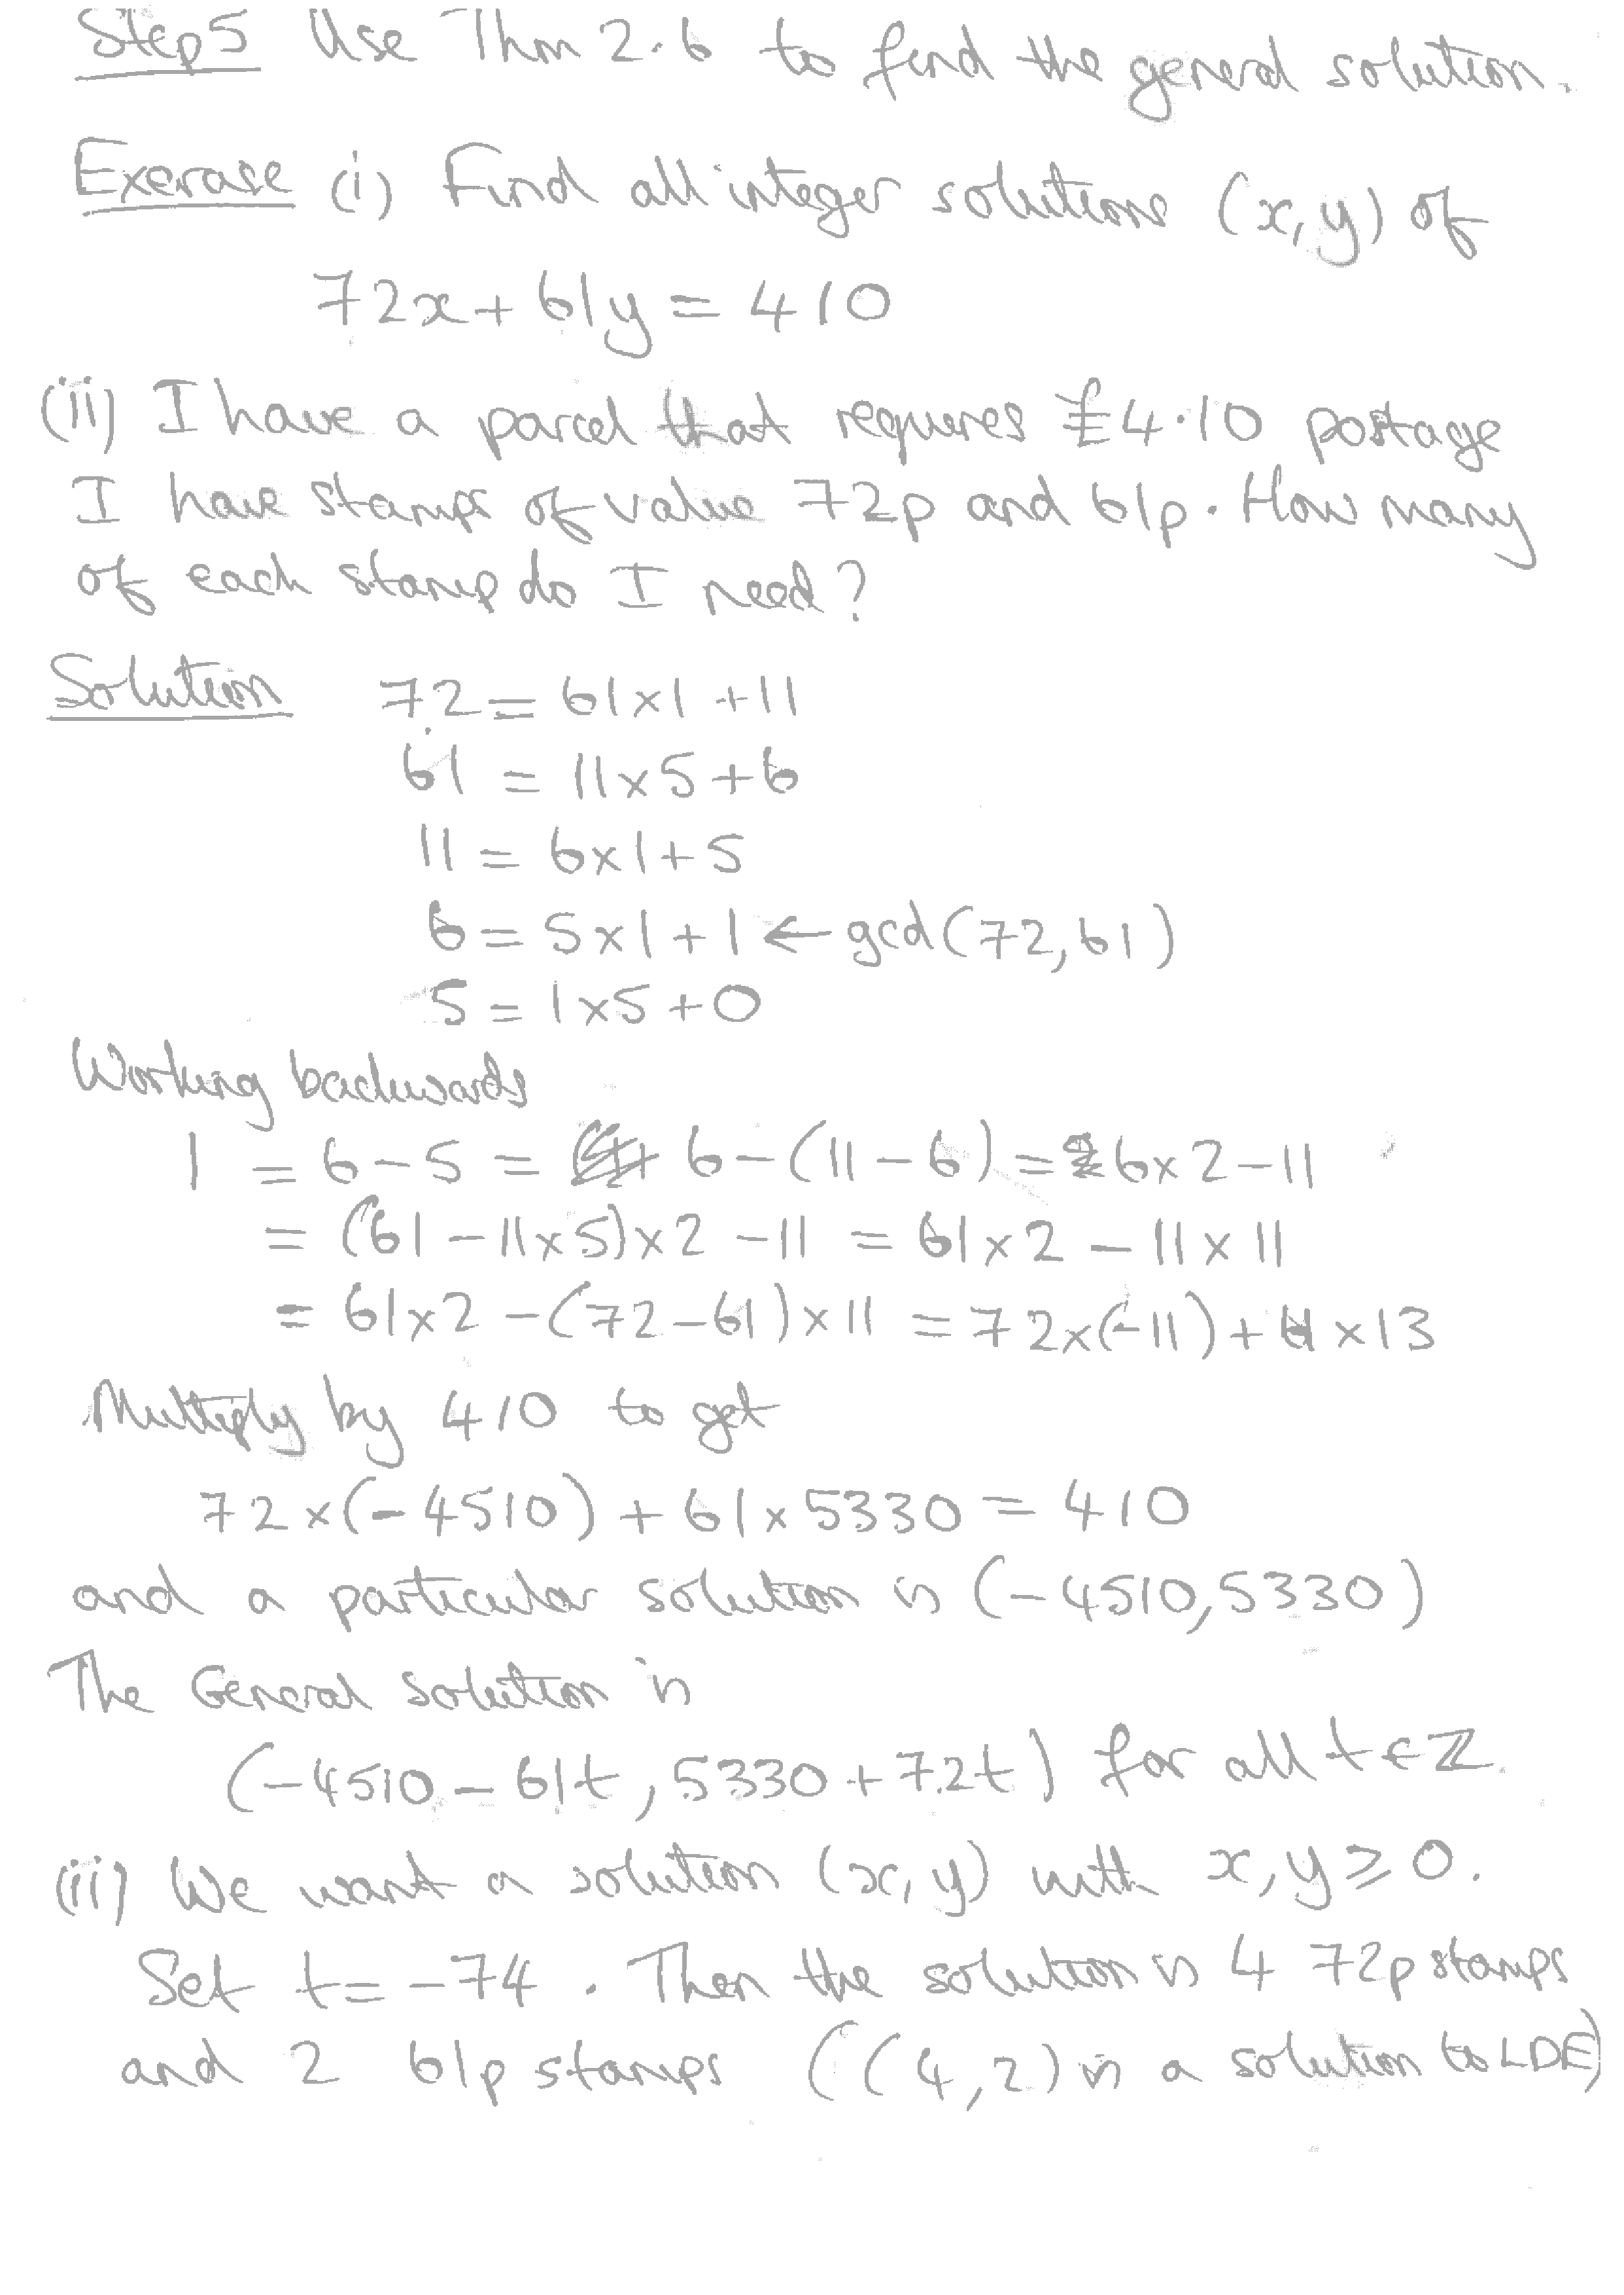 Step 5 Use Thm 2.6 to find the general solution.
Exercise (i) Find all integer solutions (x,y) of
72x + 61y = 410
(ii) I have a parcel that requires £4.10 postage
I have stamps of value 72p and 61p. How many
of each stamp do I need?
Solution 72 = 61×1 + 11
61 = 11×5 + 6
11 = 6×1 + 5
6 = 5×1 + 1 ← gcd(72,61)
5 = 1×5 + 0
Working backwards
1 = 6 - 5 = 6 - (11 - 6) = 6×2 - 11
= (61 - 11×5)×2 - 11 = 61×2 - 11×11
= 61×2 - (72 - 61)×11 = 72×(-11) + 61×13
Multiply by 410 to get
72×(-4510) + 61×5330 = 410
and a particular solution is (-4510, 5330)
The General Solution is
(-4510 - 61t, 5330 + 72t) for all t ∈ ℤ.
(ii) We want a solution (x,y) with x, y ≥ 0.
Set t = -74. Then the solution is 4 72p stamps
and 2 61p stamps ((4,2) is a solution to LDE)